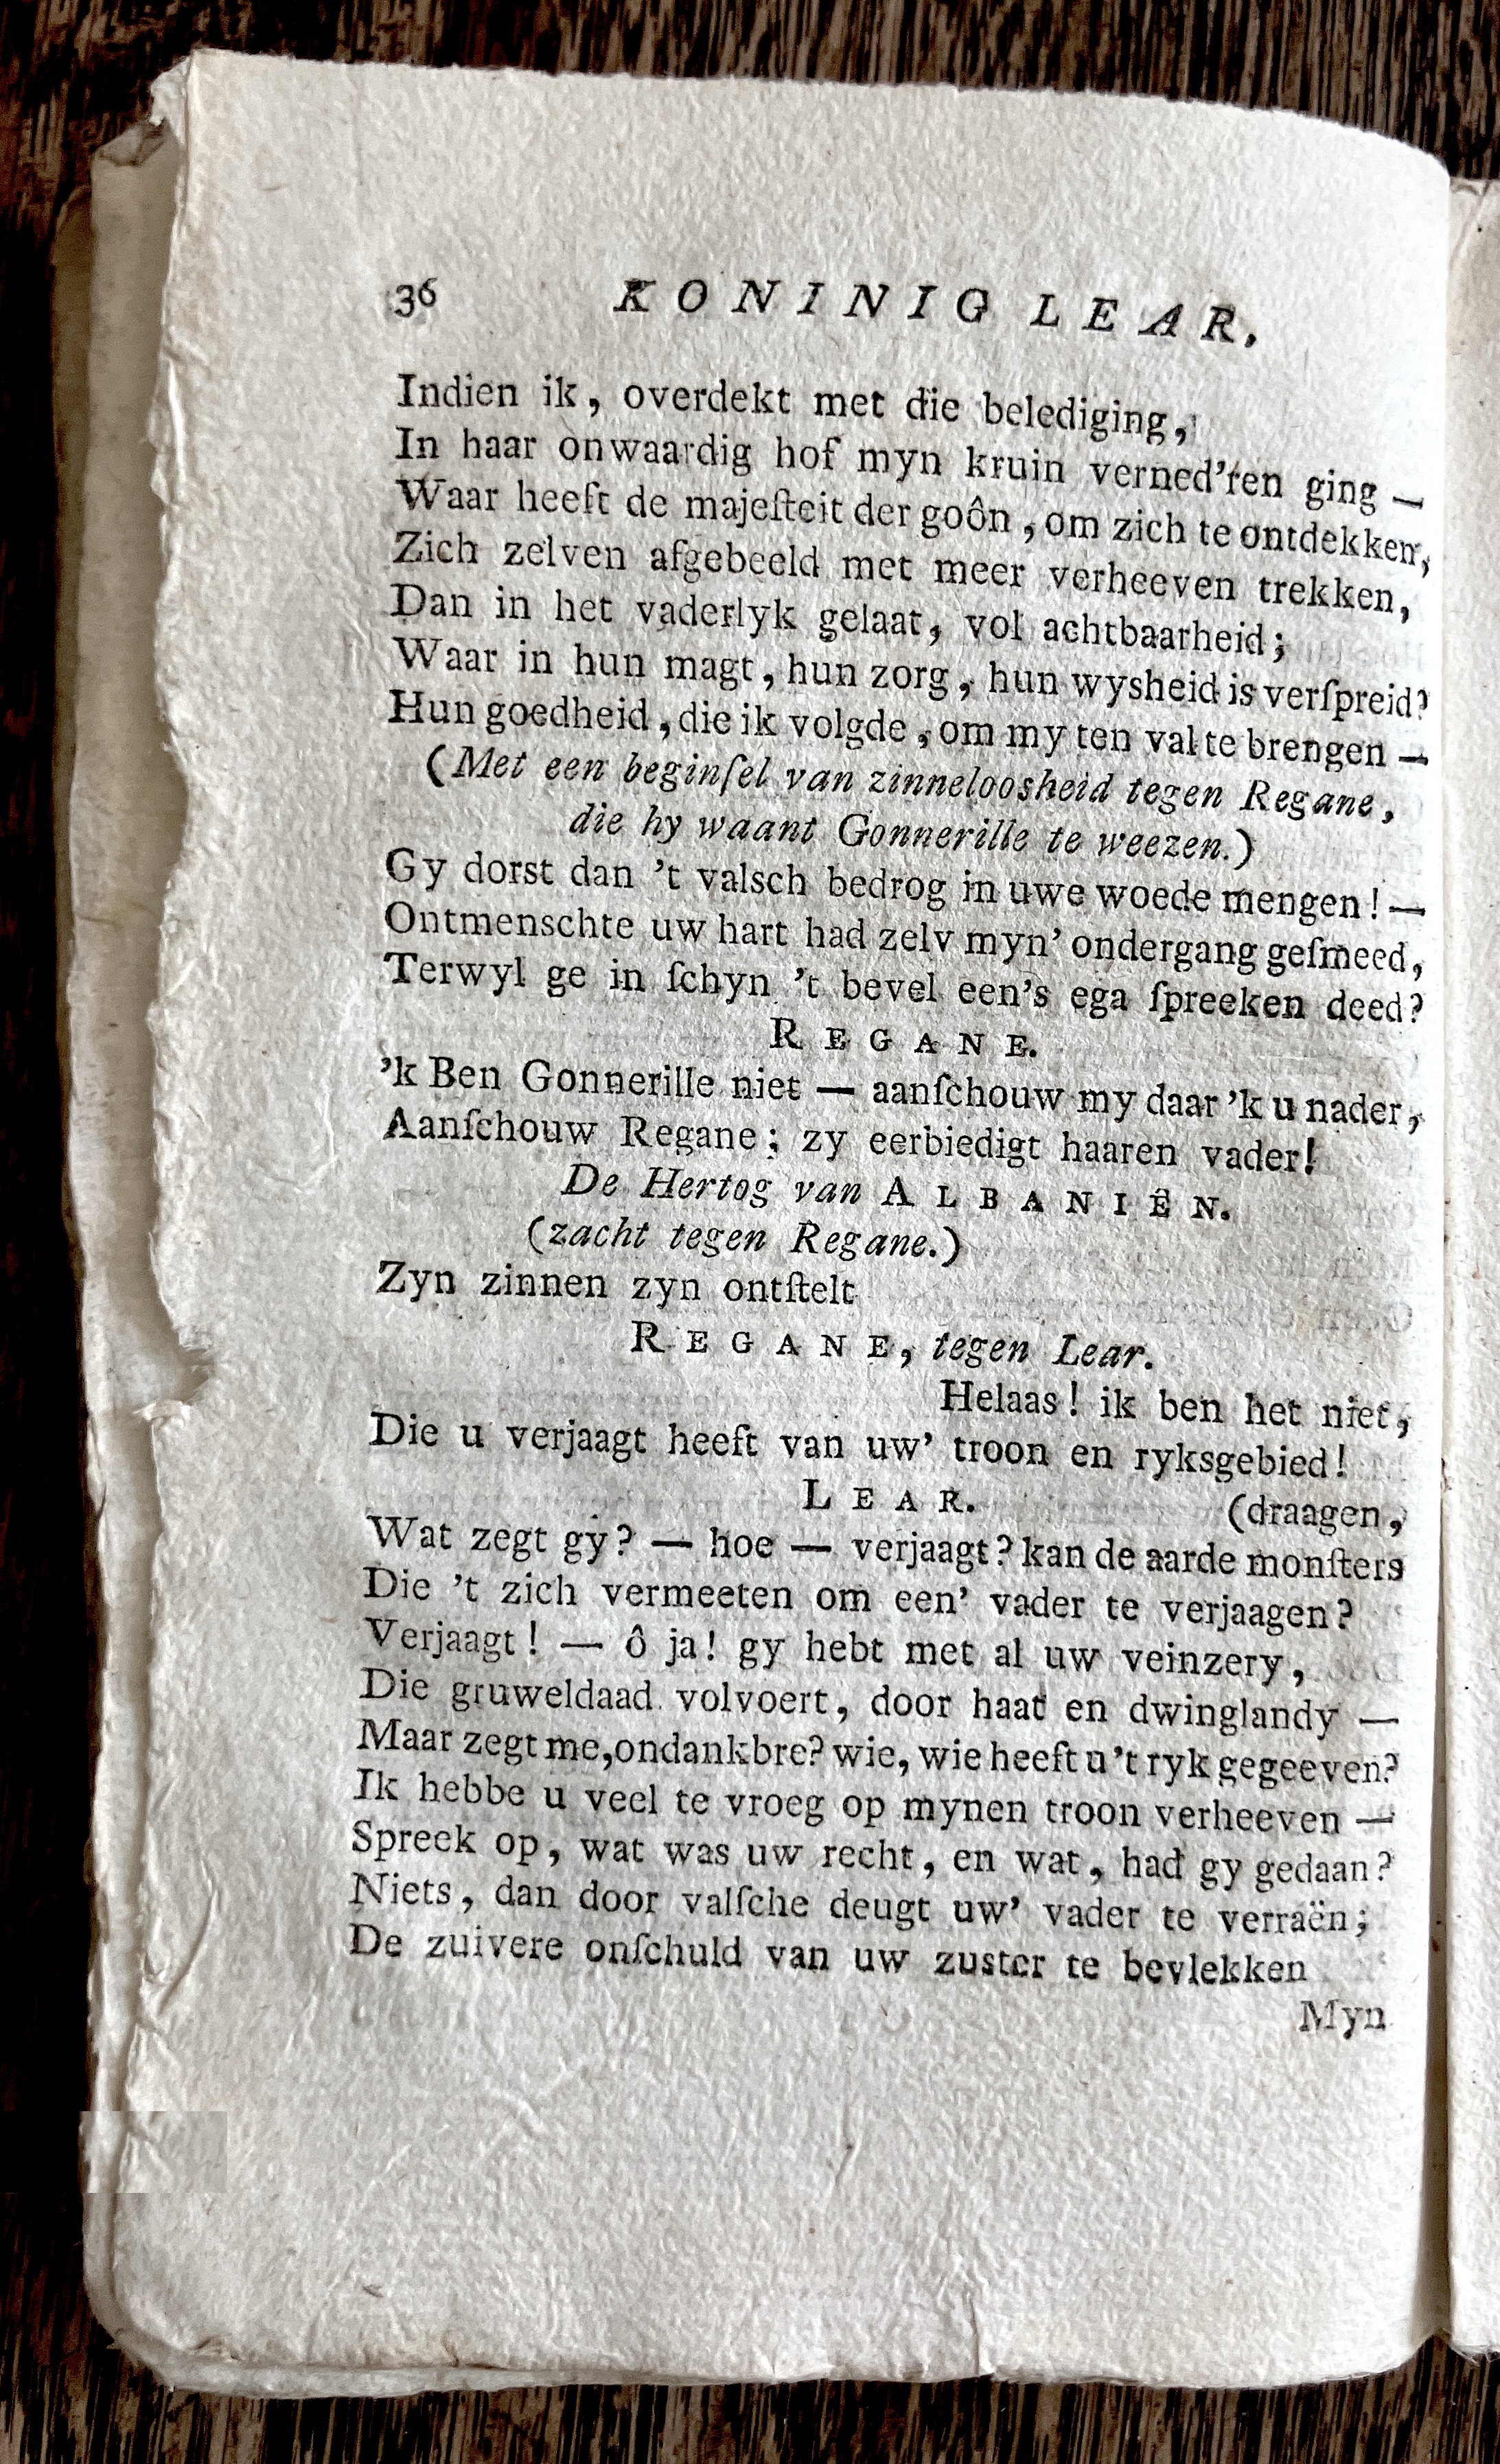 36 KONINIG LEAR.
Indien ik, overdekt met die belediging,
In haar onwaardig hof myn kruin verned'ren ging —
Waar heeft de majeſteit der goôn, om zich te ontdekken,
Zich zelven afgebeeld met meer verheeven trekken,
Dan in het vaderlyk gelaat, vol achtbaarheid;
Waar in hun magt, hun zorg, hun wysheid is verſpreid?
Hun goedheid, die ik volgde, om my ten val te brengen —
(Met een beginſel van zinneloosheid tegen Regane,
die hy waant Gonnerille te weezen.)
Gy dorst dan 't valsch bedrog in uwe woede mengen! —
Ontmenschte uw hart had zelv myn' ondergang geſmeed,
Terwyl ge in ſchyn 't bevel een's ega ſpreeken deed?
REGANE.
'k Ben Gonnerille niet — aanſchouw my daar 'k u nader,
Aanſchouw Regane; zy eerbiedigt haaren vader!
De Hertog van ALBANIËN.
(zacht tegen Regane.)
Zyn zinnen zyn ontſtelt
REGANE, tegen Lear.
Helaas! ik ben het niet,
Die u verjaagt heeft van uw' troon en ryksgebied!
LEAR. (draagen,
Wat zegt gy? — hoe — verjaagt? kan de aarde monſters
Die 't zich vermeeten om een' vader te verjaagen?
Verjaagt! — ô ja! gy hebt met al uw veinzery,
Die gruweldaad volvoert, door haat en dwinglandy —
Maar zegt me, ondankbre? wie, wie heeft u 't ryk gegeeven?
Ik hebbe u veel te vroeg op mynen troon verheeven —
Spreek op, wat was uw recht, en wat, had gy gedaan?
Niets, dan door valſche deugt uw' vader te verraën;
De zuivere onſchuld van uw zuster te bevlekken
Myn